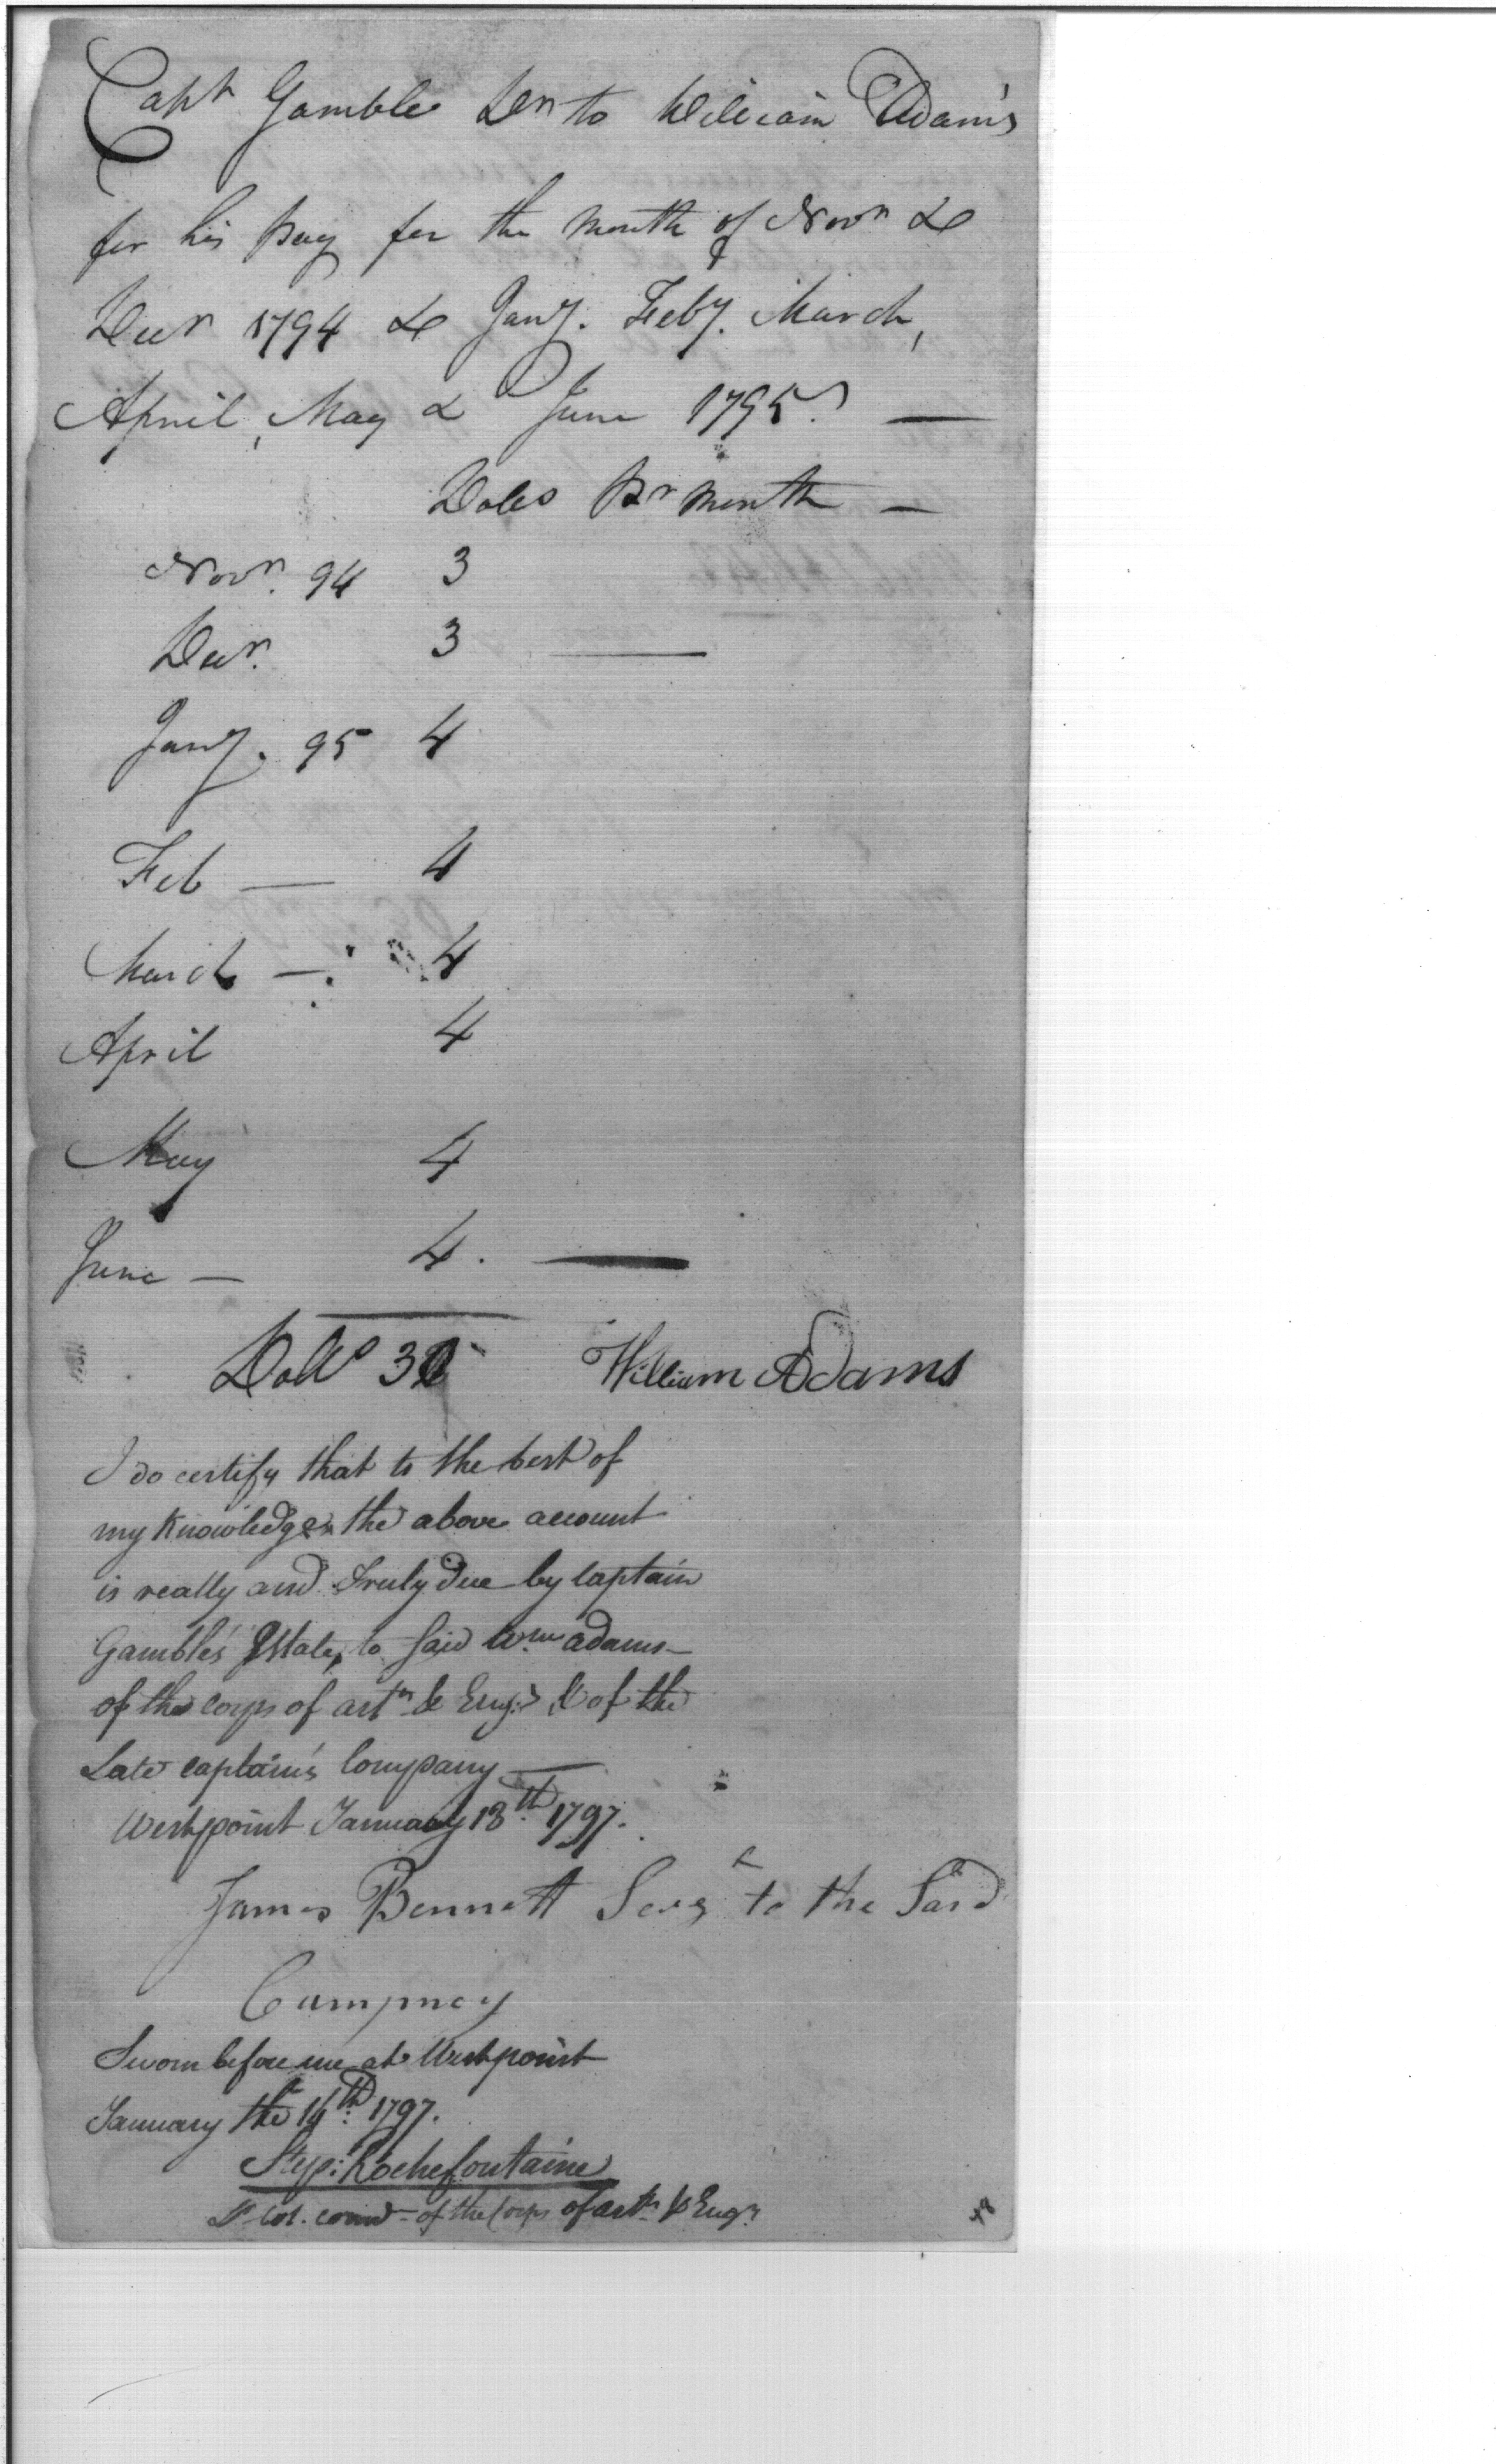 Capt Gamble Dr to William Adams
for his pay for the month of Novr &
Decr 1794 & Jany. Feby. March,
April, May & June 1795. —
Dolls pr month —
Novr. 94 3
Decr. 3 —
Jany. 95 4
Feb — 4
March — 4
April 4
May 4
June — 4. —
Dolls 30 William Adams
I do certify that to the best of
my Knowledge the above account
is really and truly due by captain
Gamble's Estate, to said Wm adams —
of the corps of arty & Engrs & of the
Late captain's Company —
Westpoint January 13th 1797.
James Bennett Sergt to the Said
Compney
Sworn before me at Westpoint
January the 14th 1797.
Step: Rochefontaine
Lt Col. comd - of the Corps of arty & Engrs